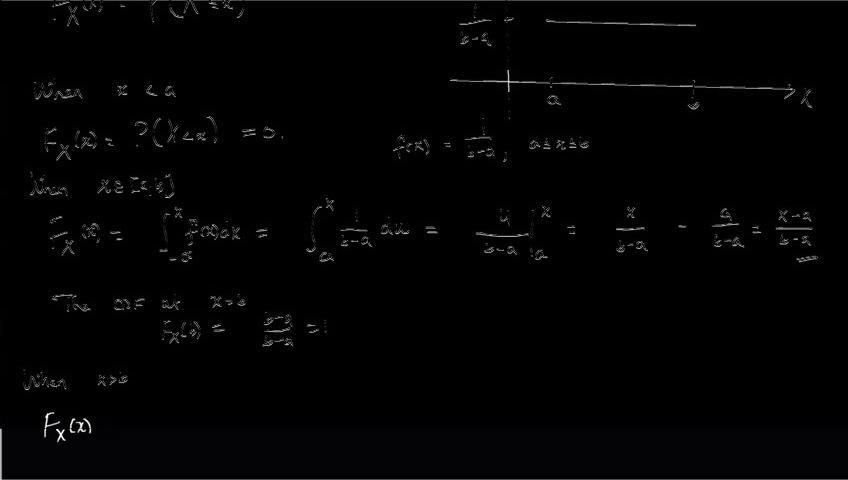 F_X(x) = P(X ≤ x)
1/(b-a)
a b X
When x < a
F_X(x) = P(X < x) = 0.
f(x) = 1/(b-a), a ≤ x ≤ b
When x ∈ [a, b]
F_X(x) = ∫_{-∞}^{x} f(x)dx = ∫_a^x 1/(b-a) du = u/(b-a) |_a^x = x/(b-a) - a/(b-a) = (x-a)/(b-a)
The CDF at x = b
F_X(b) = (b-a)/(b-a) = 1
When x > b
F_X(x)